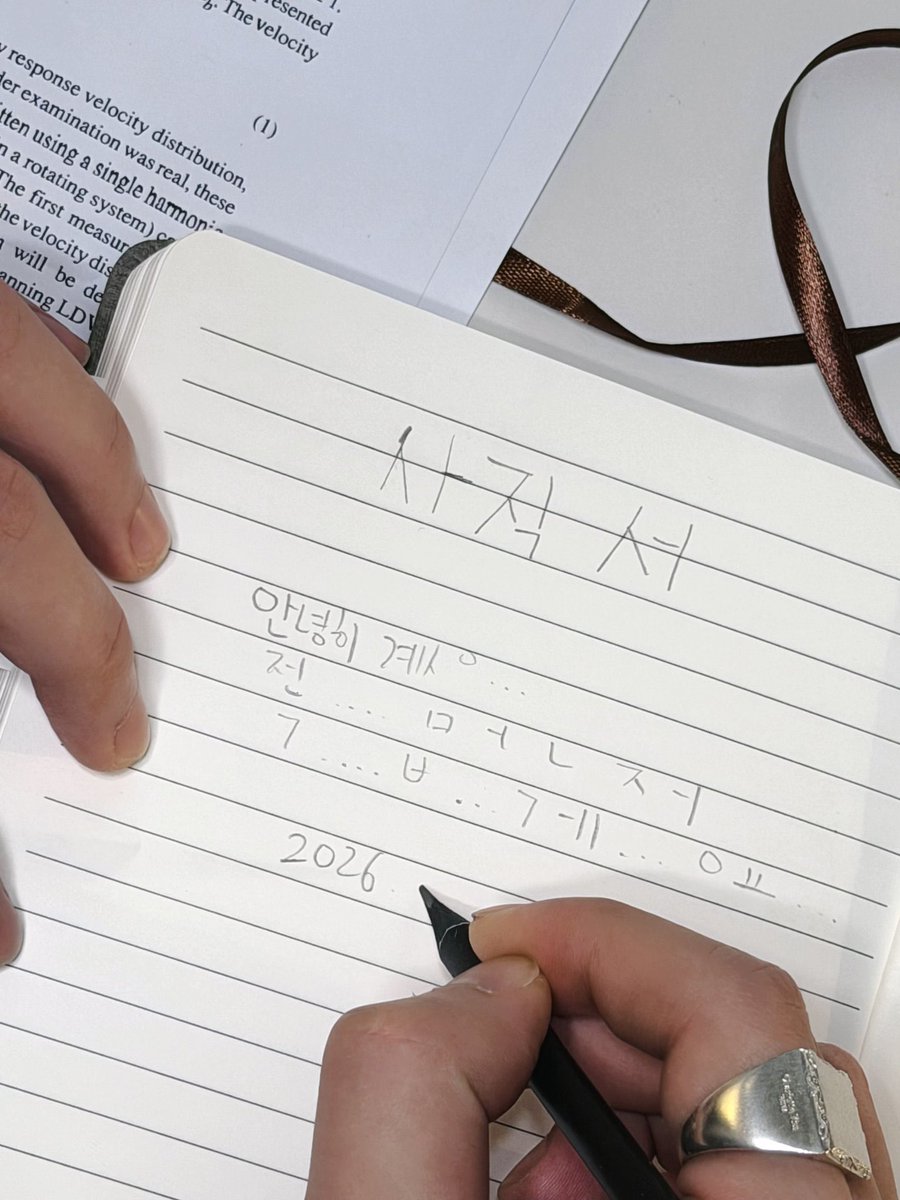 resented
The velocity
response velocity distribution,
der examination was real, these
tten using a single harmonic
n a rotating system)
The first measur
the velocity dis
will be de
anning LDV
(1)
사직서
안녕히 계시ㅇ...
전 .... ㅁ ㅓ ㄴ ㅈ ㅓ
ㄱ .... ㅂ ... ㄱ ㅔ ... ㅇ ㅛ ....
2026.